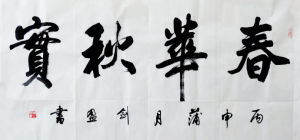 春華秋實
丙申蒲月劍盈書